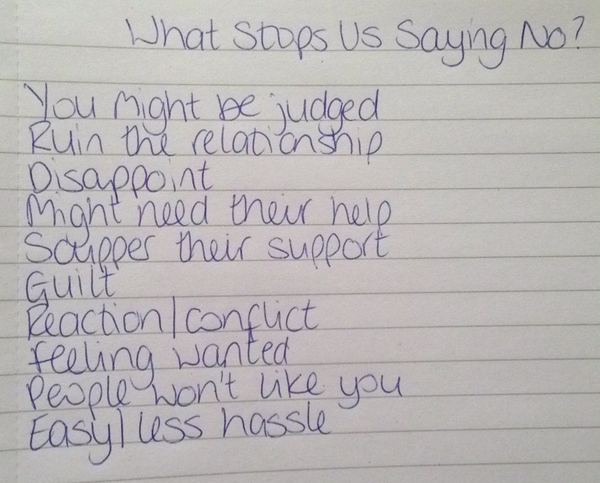 What Stops Us Saying No?
You might be judged
Ruin the relationship
Disappoint
Might need their help
Scupper their support
Guilt
Reaction/conflict
feeling wanted
People won't like you
Easy/less hassle